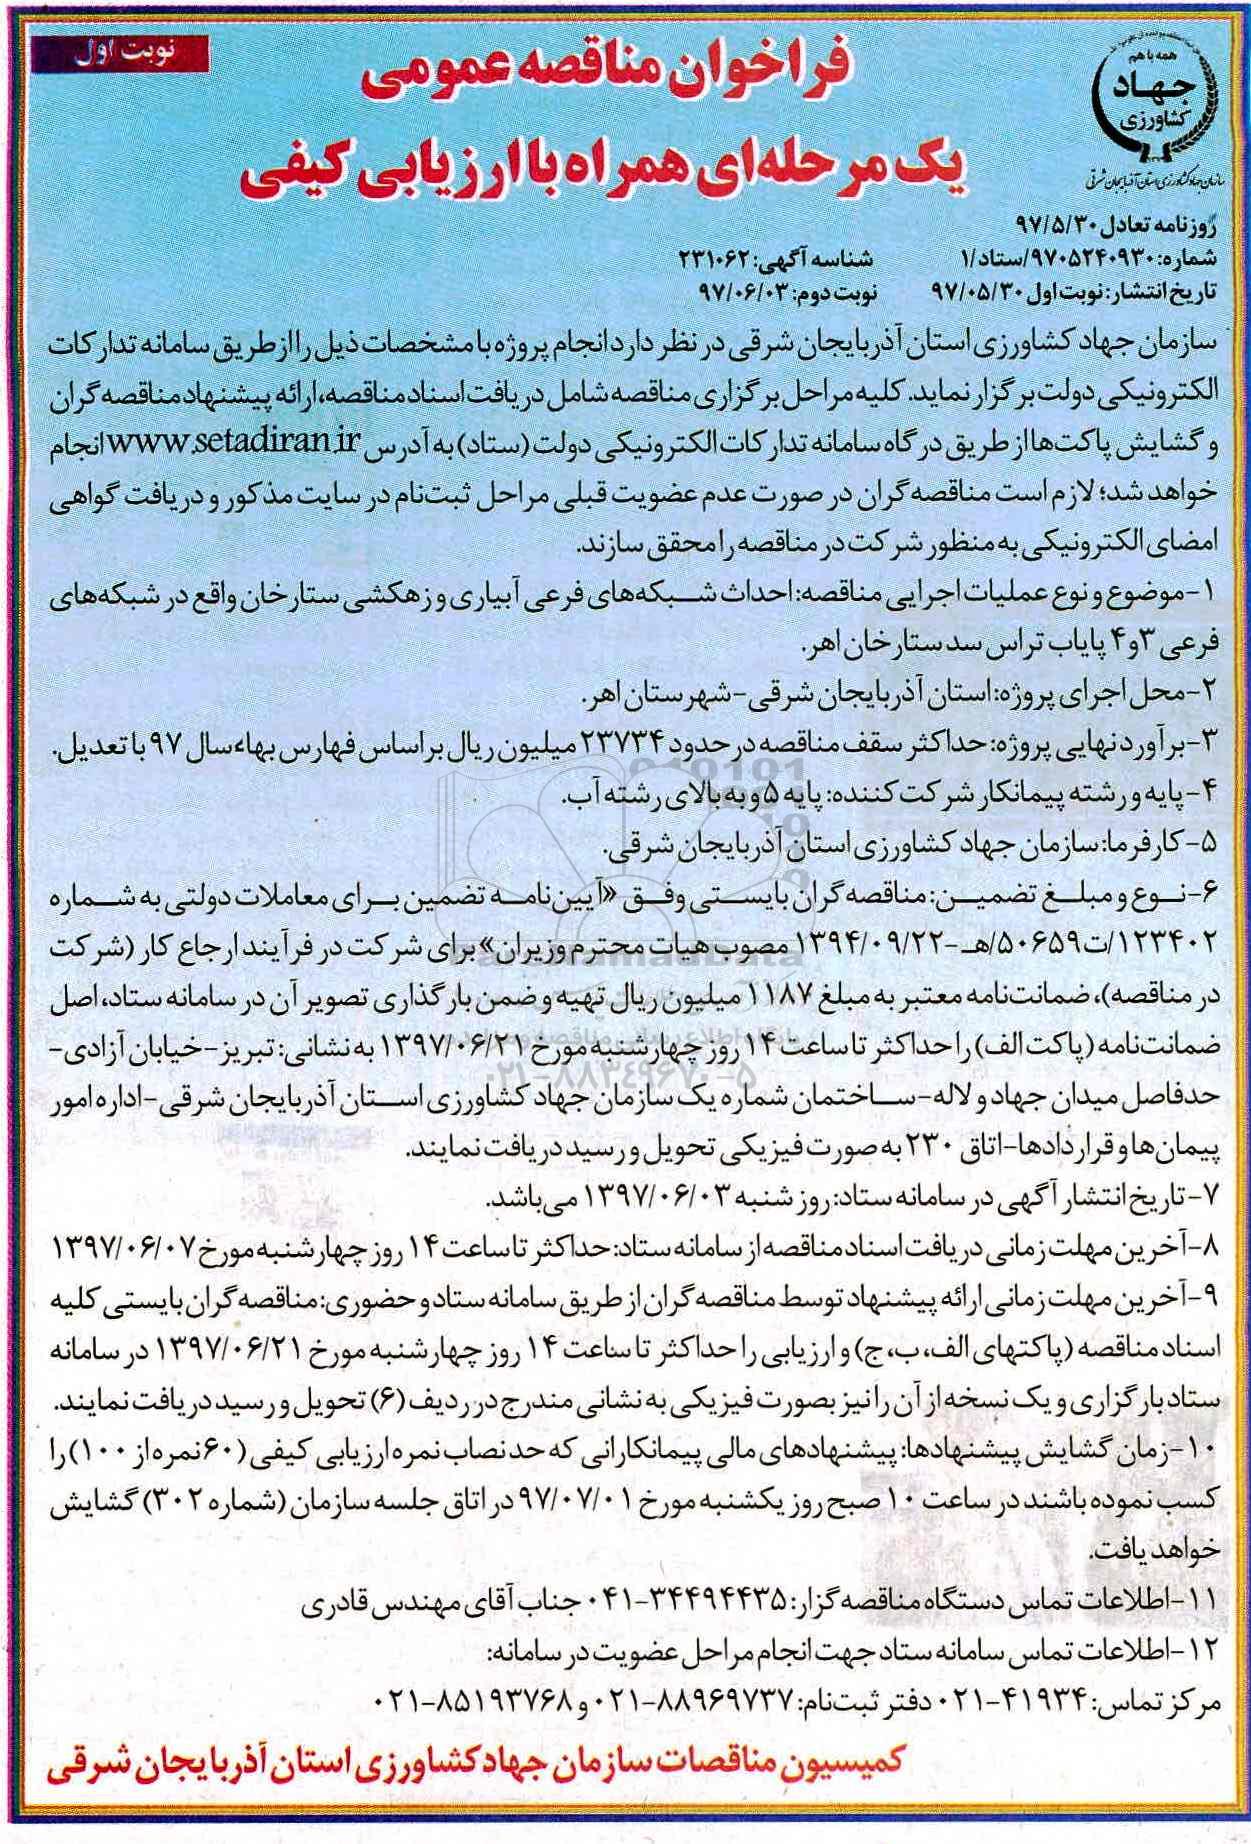 نوبت اول
همه با هم
جهاد
کشاورزی
سازمان جهاد کشاورزی استان آذربایجان شرقی
فراخوان مناقصه عمومی
یک مرحله‌ای همراه با ارزیابی کیفی
روزنامه تعادل ۹۷/۵/۳۰
شماره: ۹۷۰۵۲۴۰۹۳۰/ستاد/۱ شناسه آگهی: ۲۳۱۰۶۲
تاریخ انتشار: نوبت اول ۹۷/۰۵/۳۰ نوبت دوم: ۹۷/۰۶/۰۳
سازمان جهاد کشاورزی استان آذربایجان شرقی در نظر دارد انجام پروژه با مشخصات ذیل را از طریق سامانه تدارکات
الکترونیکی دولت برگزار نماید. کلیه مراحل برگزاری مناقصه شامل دریافت اسناد مناقصه، ارائه پیشنهاد مناقصه گران
و گشایش پاکت‌ها از طریق درگاه سامانه تدارکات الکترونیکی دولت (ستاد) به آدرس www.setadiran.ir انجام
خواهد شد؛ لازم است مناقصه گران در صورت عدم عضویت قبلی مراحل ثبت‌نام در سایت مذکور و دریافت گواهی
امضای الکترونیکی به منظور شرکت در مناقصه را محقق سازند.
۱-موضوع و نوع عملیات اجرایی مناقصه: احداث شبکه‌های فرعی آبیاری و زهکشی ستارخان واقع در شبکه‌های
فرعی ۳و۴ پایاب تراس سد ستارخان اهر.
۲-محل اجرای پروژه: استان آذربایجان شرقی-شهرستان اهر.
۳-برآورد نهایی پروژه: حداکثر سقف مناقصه در حدود ۲۳۷۳۴ میلیون ریال بر اساس فهارس بهاء سال ۹۷ با تعدیل.
۴-پایه و رشته پیمانکار شرکت کننده: پایه ۵ و به بالای رشته آب.
۵-کارفرما: سازمان جهاد کشاورزی استان آذربایجان شرقی.
۶-نوع و مبلغ تضمین: مناقصه گران بایستی وفق «آیین‌نامه تضمین برای معاملات دولتی به شماره
۱۲۳۴۰۲/ت۵۰۶۵۹/هـ-۱۳۹۴/۰۹/۲۲ مصوب هیات محترم وزیران» برای شرکت در فرآیند ارجاع کار (شرکت
در مناقصه)، ضمانت‌نامه معتبر به مبلغ ۱۱۸۷ میلیون ریال تهیه و ضمن بارگذاری تصویر آن در سامانه ستاد، اصل
ضمانت‌نامه (پاکت الف) را حداکثر تا ساعت ۱۴ روز چهارشنبه مورخ ۱۳۹۷/۰۶/۲۱ به نشانی: تبریز-خیابان آزادی-
حدفاصل میدان جهاد و لاله-ساختمان شماره یک سازمان جهاد کشاورزی استان آذربایجان شرقی-اداره امور
پیمان‌ها و قراردادها-اتاق ۲۳۰ به صورت فیزیکی تحویل و رسید دریافت نمایند.
۷-تاریخ انتشار آگهی در سامانه ستاد: روز شنبه ۱۳۹۷/۰۶/۰۳ می‌باشد.
۸-آخرین مهلت زمانی دریافت اسناد مناقصه از سامانه ستاد: حداکثر تا ساعت ۱۴ روز چهارشنبه مورخ ۱۳۹۷/۰۶/۰۷
۹-آخرین مهلت زمانی ارائه پیشنهاد توسط مناقصه گران از طریق سامانه ستاد و حضوری: مناقصه گران بایستی کلیه
اسناد مناقصه (پاکتهای الف، ب، ج) و ارزیابی را حداکثر تا ساعت ۱۴ روز چهارشنبه مورخ ۱۳۹۷/۰۶/۲۱ در سامانه
ستاد بارگزاری و یک نسخه از آن را نیز بصورت فیزیکی به نشانی مندرج در ردیف (۶) تحویل و رسید دریافت نمایند.
۱۰-زمان گشایش پیشنهادها: پیشنهادهای مالی پیمانکارانی که حد نصاب نمره ارزیابی کیفی (۶۰ نمره از ۱۰۰) را
کسب نموده باشند در ساعت ۱۰ صبح روز یکشنبه مورخ ۹۷/۰۷/۰۱ در اتاق جلسه سازمان (شماره ۳۰۲) گشایش
خواهد یافت.
۱۱-اطلاعات تماس دستگاه مناقصه گزار: ۳۴۴۹۴۴۳۵-۰۴۱ جناب آقای مهندس قادری
۱۲-اطلاعات تماس سامانه ستاد جهت انجام مراحل عضویت در سامانه:
مرکز تماس: ۴۱۹۳۴-۰۲۱ دفتر ثبت‌نام: ۸۸۹۶۹۷۳۷-۰۲۱ و ۸۵۱۹۳۷۶۸-۰۲۱
کمیسیون مناقصات سازمان جهاد کشاورزی استان آذربایجان شرقی
۰۲۱-۸۸۳۴۹۶۷۰-۵